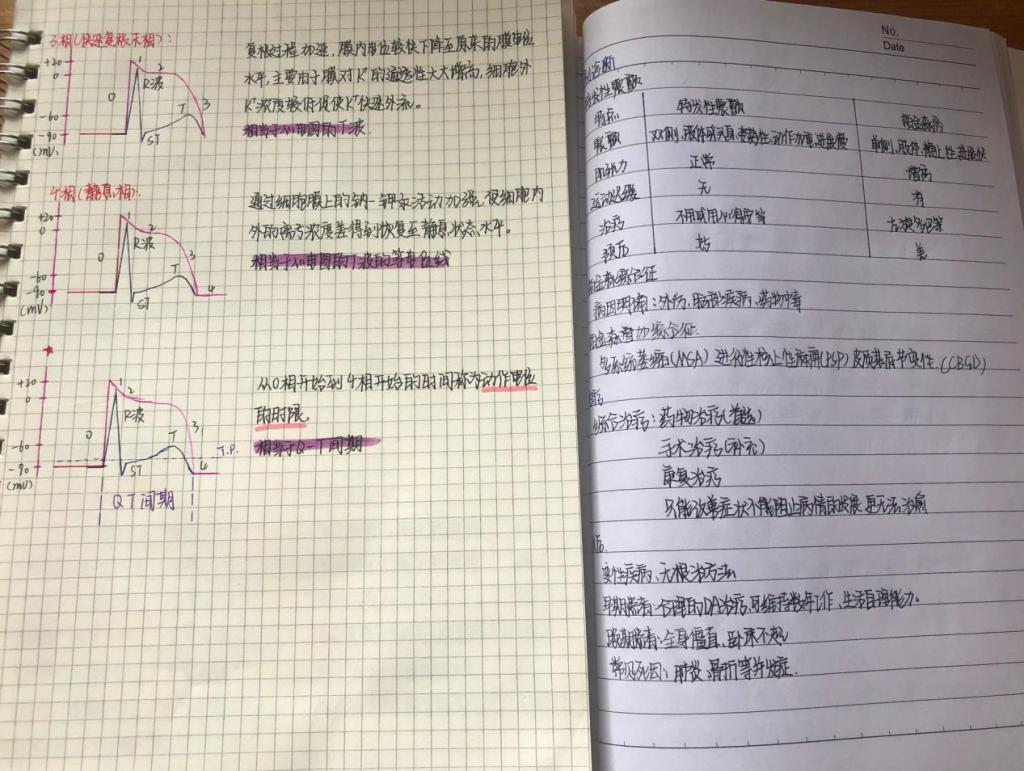 3相(快速复极末相):
复极过程加速,膜内电位较快下降至原来的膜电位
水平,主要由于膜对K⁺的通透性大大增高,细胞外
K⁺浓度较低促使K⁺快速外流。
相当于心电图的T波
+20
0
-60
-90
(mV)
0
1
2
R波
T
3
ST
4相(静息相):
通过细胞膜上的钠-钾泵活动加强,使细胞内
外的离子浓度差得到恢复至静息状态水平。
相当于心电图的T波的等电位线
+20
0
-60
-90
(mV)
0
1
2
R波
T
3
4
ST
从0相开始到4相开始的时间称为动作电位
的时限
相当于Q-T间期
+20
0
-60
-90
(mV)
0
1
2
R波
T
3
4
T.P.
ST
QT间期
No.
Date
诊断
发性震颤
特发性震颤 帕金森病
震颤 双侧,
肌张力 正常 增高
运动迟缓 无 有
治疗
预后 好 差
合征
病因明确:外伤、脑部疾病、药物等
帕金森叠加综合征:
多系统萎缩(MSA) 进行性核上性麻痹(PSP) 皮质基底节变性(CBGD)
综合治疗:药物治疗(首选)
手术治疗(补充)
康复治疗
只能改善症状不能阻止病情的发展 更无法治愈
后.
变性疾病、无根治方法
早期患者:合理的DA治疗,可维持数年工作、生活自理能力。
晚期患者:全身僵直、卧床不起
常见死因:肺炎、骨折等并发症.